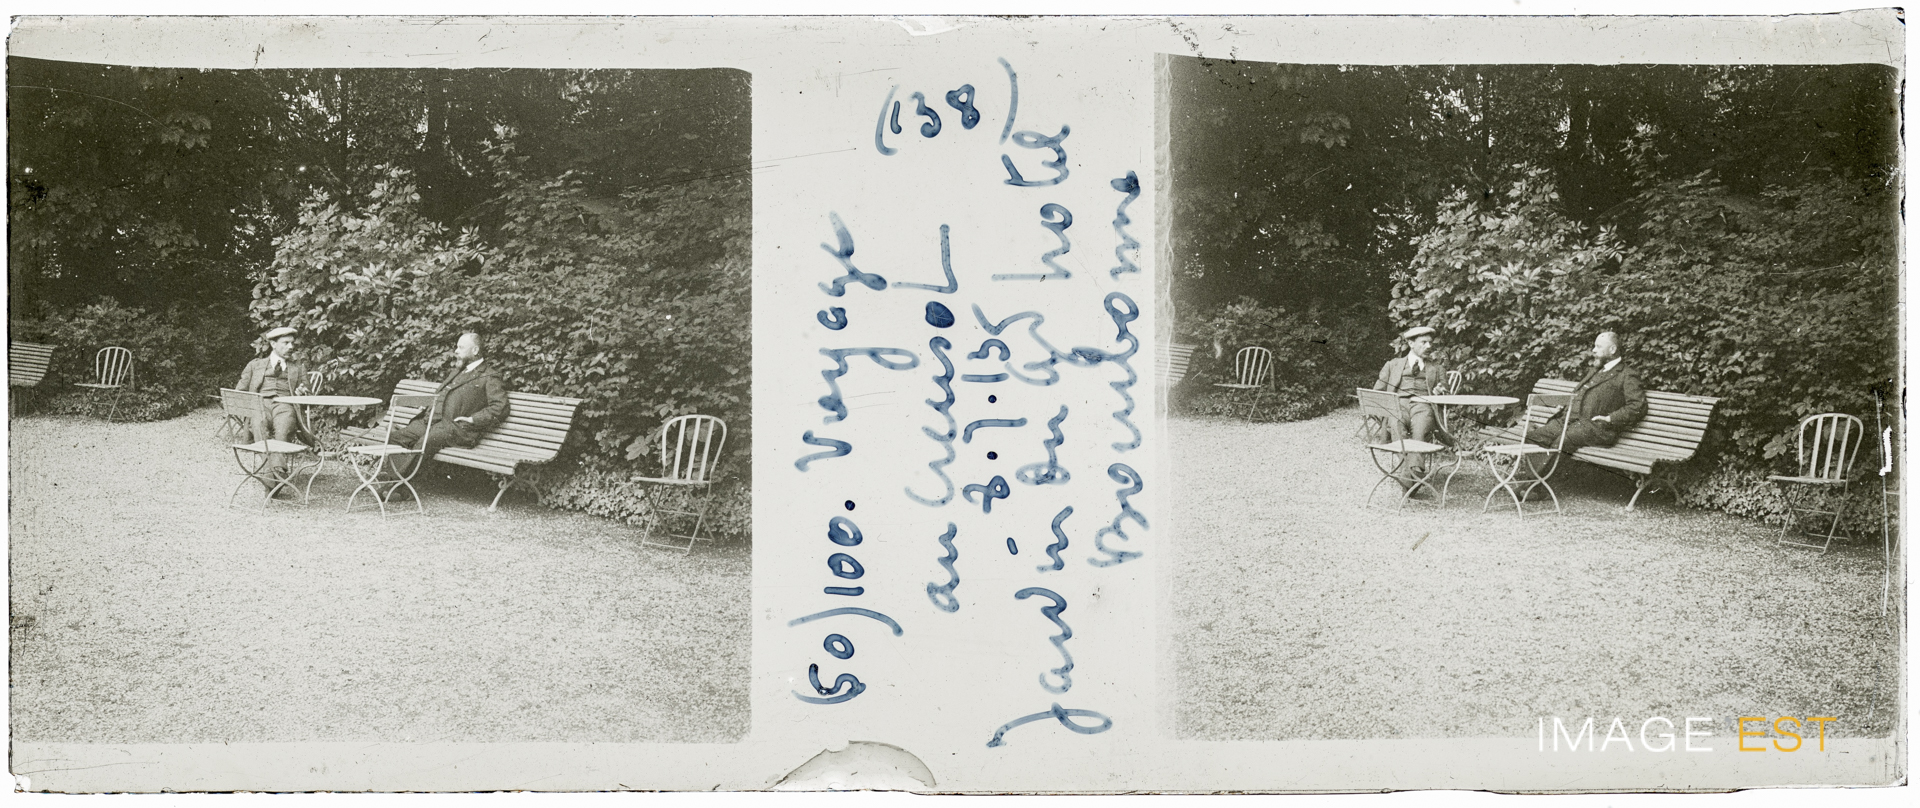 (50) 100. Voyage
au Creusot (138)
8.7.15
Jardin du Gd hotel
Bourbonne
IMAGE EST